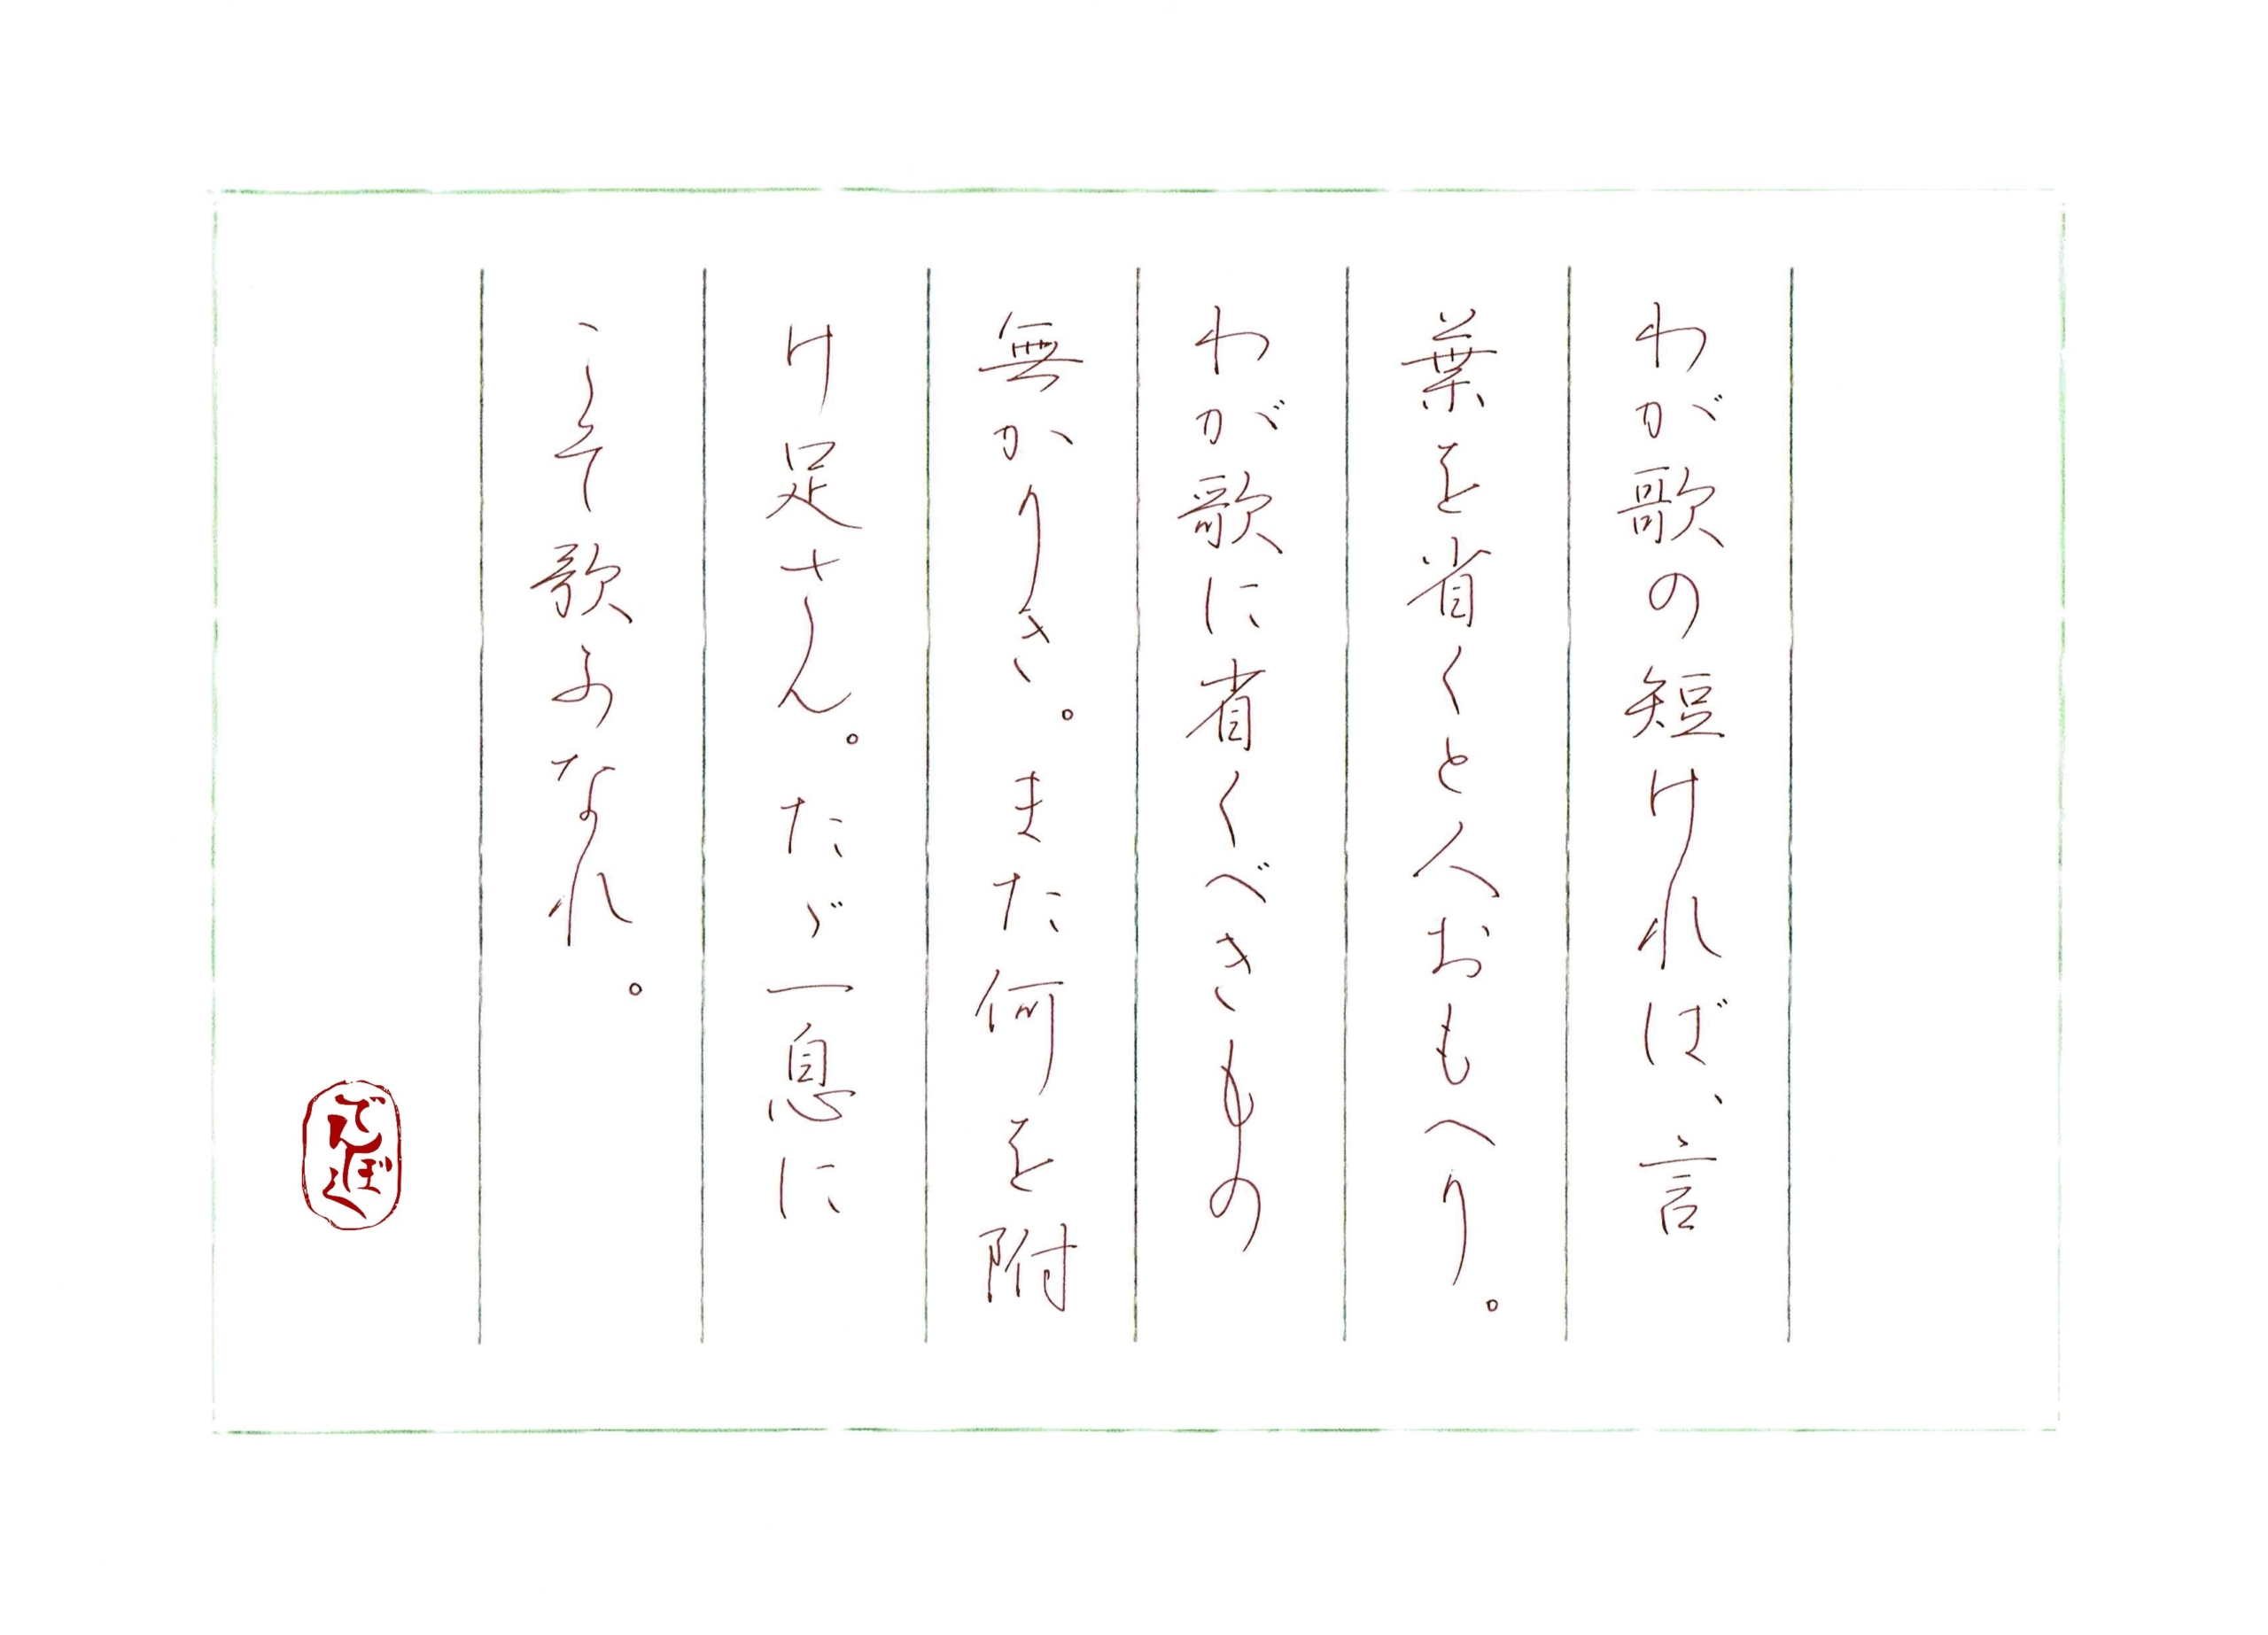 わが歌の短ければ、言
葉を省くと人おもへり。
わが歌に省くべきもの
無かりき。また何を附
け足さん。たゞ一息に
こそ歌ふなれ。
でんぼく